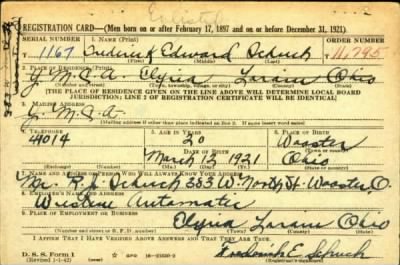 Enlisted
REGISTRATION CARD—(Men born on or after February 17, 1897 and on or before December 31, 1921)
SERIAL NUMBER 1. NAME (Print) ORDER NUMBER
1167 Frederick Edward Schuch 11,795
(First) (Middle) (Last)
2. PLACE OF RESIDENCE (Print)
Y.M.C.A. Elyria Lorain Ohio
(Number and street) (Town, township, village, or city) (County) (State)
[THE PLACE OF RESIDENCE GIVEN ON THE LINE ABOVE WILL DETERMINE LOCAL BOARD
JURISDICTION; LINE 2 OF REGISTRATION CERTIFICATE WILL BE IDENTICAL]
3. MAILING ADDRESS
Y.M.C.A.
[Mailing address if other than place indicated on line 2. If same insert word same]
4. TELEPHONE 5. AGE IN YEARS 6. PLACE OF BIRTH
4014 20 Wooster
DATE OF BIRTH (Town or county)
March 12 1921 Ohio
(Exchange) (Number) (Mo.) (Day) (Yr.) (State or country)
7. NAME AND ADDRESS OF PERSON WHO WILL ALWAYS KNOW YOUR ADDRESS
Schuch 333 W. North St. Wooster, O.
8. EMPLOYER'S NAME AND ADDRESS
Western Automatic
9. PLACE OF EMPLOYMENT OR BUSINESS
Elyria Lorain Ohio
(Number and street or R. F. D. number) (Town) (County) (State)
I AFFIRM THAT I HAVE VERIFIED ABOVE ANSWERS AND THAT THEY ARE TRUE.
D. S. S. Form 1 GPO 16—21630-2 Frederick E. Schuch
(Revised 1-1-42) (over) (Registrant's signature)